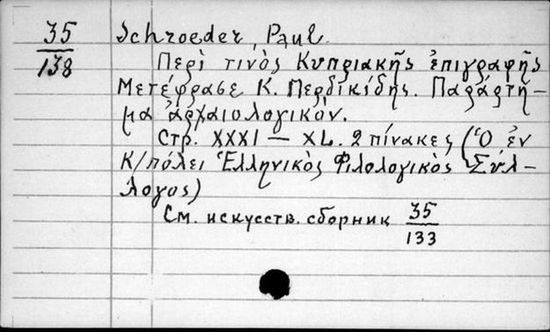 35
138
Schroeder, Paul.
Περὶ τινὸς Κυπριακῆς ἐπιγραφῆς
Μετέφρασε Κ. Περδικίδης. Παράρτη-
μα ἀρχαιολογικὸν.
Στρ. XXXI — XL. 2 πίνακες (Ὁ ἐν
Κ/πόλει Ἑλληνικὸς Φιλολογικὸς Σύλ-
λογος)
См. искусств. сборник 35
133